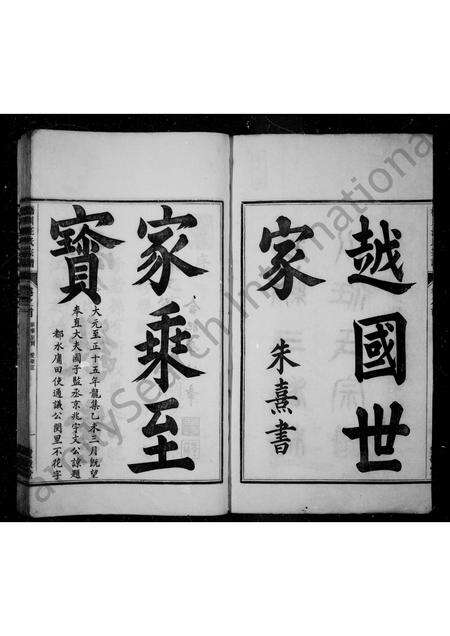 越國世
家
朱熹書
家乘至
寶
大元至正十五年龍集乙未三月既望
奉直大夫國子監丞京兆宇文公諒題
都水庸田使通議公閱里不花字
FamilySearch International